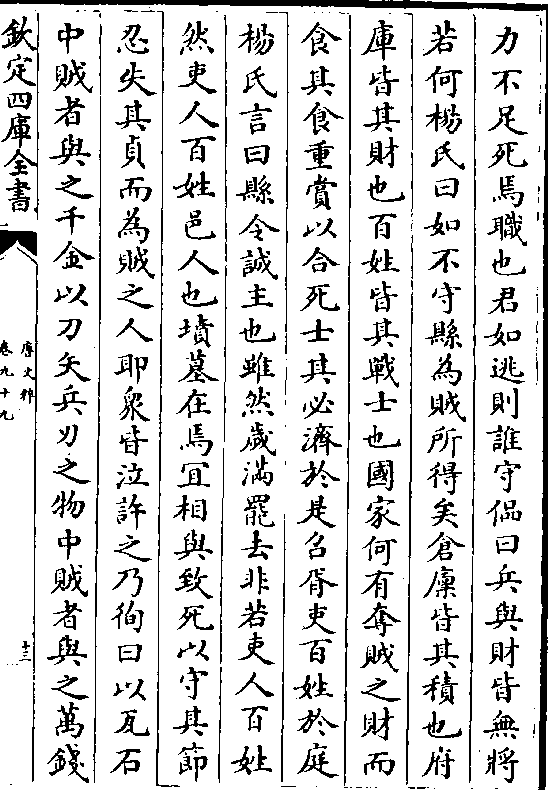 力不足死焉職也君如逃則誰守侣曰兵與財皆無將
若何楊氏曰如不守縣為賊所得矣倉廩皆其積也府
庫皆其財也百姓皆其戰士也國家何有奪賊之財而
食其食重賞以合死士其必濟於是召胥吏百姓於庭
楊氏言曰縣令誠主也雖然歲滿罷去非若吏人百姓
然吏人百姓邑人也墳墓在焉宜相與致死以守其節
忍失其貞而為賊之人耶衆皆泣許之乃徇曰以瓦石
中賊者與之千金以刀矢兵刃之物中賊者與之萬錢
欽定四庫全書
唐文粹
卷九十九
十三